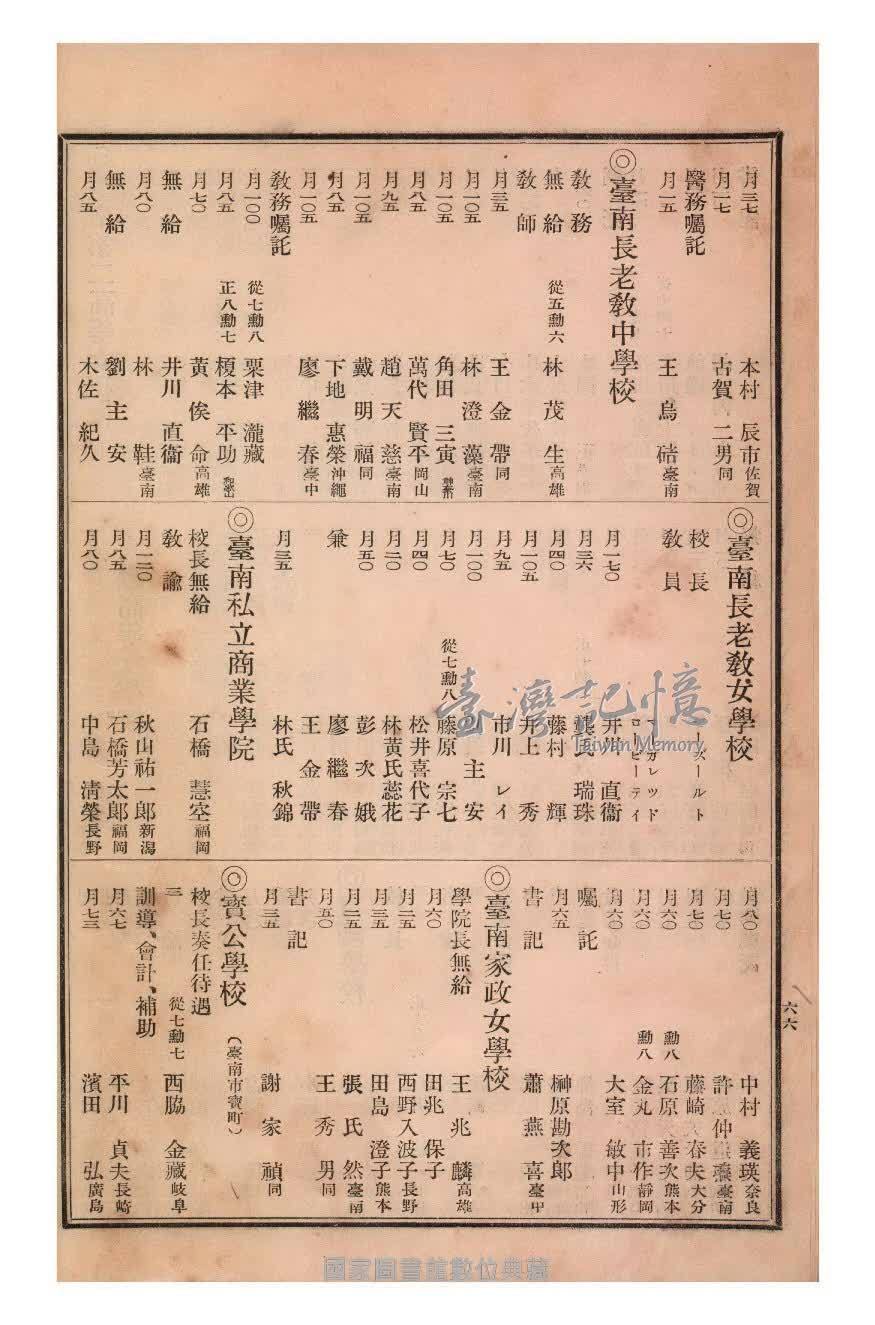 月三七 本村 辰市 佐賀
月一七 古賀 二男 同
醫務囑託
月一五 王 烏 硞 臺南
◎臺南長老敎中學校
敎務
無給 從五勳六 林 茂 生 高雄
敎師
月三五 王 金 帶 同
月一〇五 林 澄 藻 臺南
月一〇五 角田 三寅
月八五 萬代 賢平 岡山
月九五 趙 天 慈 臺南
月一〇五 戴 明 福 同
月八五 下地 惠榮 沖繩
月一〇五 廖 繼 春 臺中
敎務囑託
月一〇〇 從七勳八 粟津 瀧藏
月八五 正八勳七 榎本 平助
月七〇 黃 俟 命 高雄
無給 井川 直衞
月八〇 林 鞋 臺南
無給 劉 主 安
月八五 木佐 紀久
◎臺南長老敎女學校
校長 ールト
敎員 ガレツド
ピーテイ
月一七〇 井川 直衞
月三六 氏 瑞珠
月四〇 藤村 輝
月一〇五 井上 秀
月九五 市川 レイ
月一〇〇 主 安
月七〇 從七勳八 藤原 宗七
月四〇 松井喜代子
月二〇 林黃氏蕊花
月五〇 彭 次 娥
兼 廖 繼 春
王 金 帶
月三五 林氏 秋錦
◎臺南私立商業學院
校長無給 石橋 慧空 福岡
敎諭
月一二〇 秋山祐一郞 新潟
月八五 石橋芳太郞 福岡
月八〇 中島 淸榮 長野
月八〇 中村 義瑛 奈良
月七〇 許 仲 臺南
月七〇 藤崎 春夫 大分
月六〇 勳八 石原 善次 熊本
月六〇 勳八 金丸 市作 靜岡
月六〇 大室 敏中 山形
囑託
月六五 榊原勘次郞
書記 蕭 燕 喜 臺中
◎臺南家政女學校
學院長無給 王 兆 麟 高雄
月六〇 田兆 保子
月二五 西野入波子 長野
月三五 田島 澄子 熊本
月二五 張氏 然 臺南
月五〇 王 秀 男 同
書記
月三五 謝 家 禎 同
◎寶公學校 (臺南市寶町)
校長奏任待遇
三 從七勳七 西脇 金藏 岐阜
訓導、會計、補助
月六七 平川 貞夫 長崎
月七三 濱田 弘 廣島
六六
臺灣記憶
Taiwan Memory
國家圖書館數位典藏